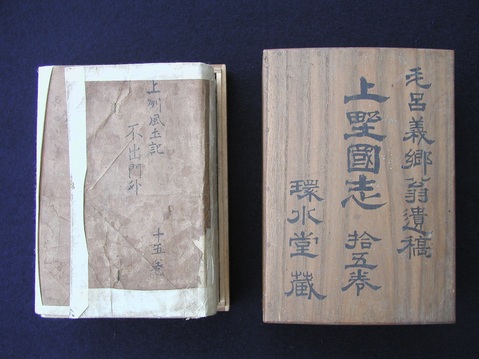 毛呂義郷翁遺稿
上野國志 拾五卷
環水堂藏
上州風土記
不出門外
十五卷